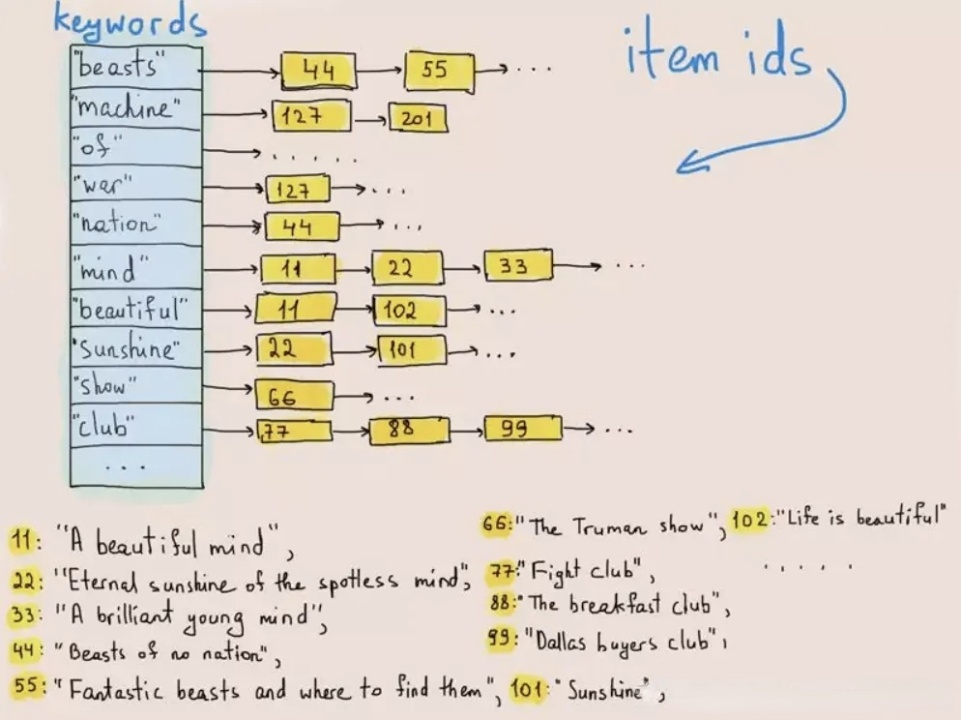 keywords
item ids
"beasts" 44 55 ...
"machine" 127 201
"of" .....
"war" 127 ...
"nation" 44 ...
"mind" 11 22 33 ...
"beautiful" 11 102 ...
"sunshine" 22 101 ...
"show" 66 ...
"club" 77 88 99 ...
...
11: "A beautiful mind",
22: "Eternal sunshine of the spotless mind",
33: "A brilliant young mind",
44: "Beasts of no nation",
55: "Fantastic beasts and where to find them", 101: "Sunshine",
66: "The Truman show", 102: "Life is beautiful"
77: "Fight club", .....
88: "The breakfast club",
99: "Dallas buyers club",